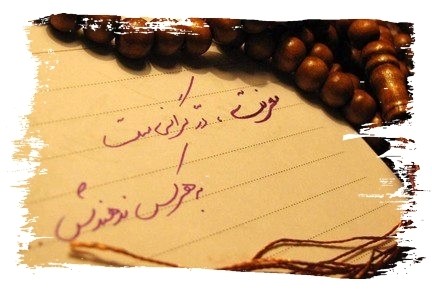 معرفت ، درّ گرانی ست
به هر کس ندهندش